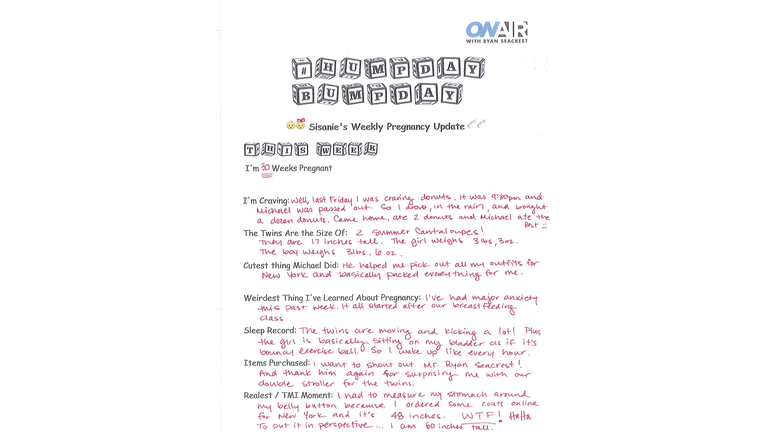 ON AIR
WITH RYAN SEACREST
#HUMPDAY
BUMPDAY
👶👧 Sisanie's Weekly Pregnancy Update 🍼🍼
THIS WEEK
I'm 30 Weeks Pregnant
I'm Craving: Well, last Friday I was craving donuts. It was 9:30pm and
Michael was passed out. So I drove, in the rain, and bought
a dozen donuts. Came home, ate 2 donuts and Michael ate the
rest :)
The Twins Are the Size Of: 2 Summer Cantaloupes!
They are 17 inches tall. The girl weighs 3 lbs, 3oz.
The boy weighs 3lbs, 6 oz.
Cutest thing Michael Did: He helped me pick out all my outfits for
New York and basically packed everything for me.
Weirdest Thing I've Learned About Pregnancy: I've had major anxiety
this past week. It all started after our breastfeeding
class
Sleep Record: The twins are moving and kicking a lot! Plus
the girl is basically sitting on my bladder as if it's
bouncy exercise ball. So I wake up like every hour.
Items Purchased: I want to shout out Mr. Ryan Seacrest!
And thank him again for surprising me with our
double stroller for the twins.
Realest / TMI Moment: I had to measure my stomach around
my belly button because I ordered some coats online
for New York and it's 48 inches. WTF! HaHa
To put it in perspective... I am 60 inches tall.